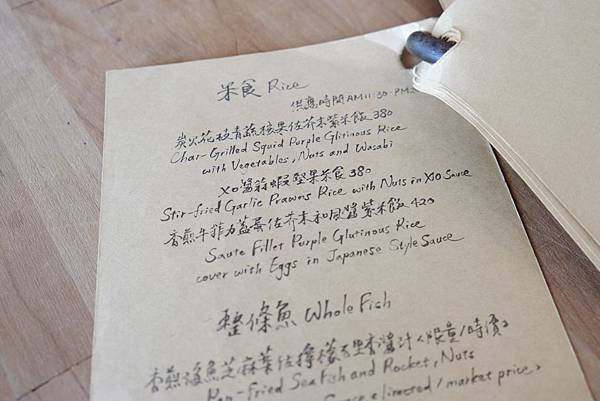 米食 Rice
供應時間AM11:30-PM
炭火花枝青蔬核果佐芥末紫米飯 380
Char-Grilled Squid Purple Glutinous Rice
with Vegetables, Nuts and Wasabi
XO醬蒜蝦堅果米食 380
Stir-fried Garlic Prawns Rice with Nuts in XO Sauce
香煎牛菲力蓋蛋佐芥末和風醬紫米飯 420
Saute Fillet Purple Glutinous Rice
cover with Eggs in Japanese Style Sauce
整條魚 Whole Fish
香煎海魚芝麻葉佐檸檬百里香醬汁<限量/時價>
Pan-fried Sea Fish and Rocket, Nuts
Sauce <limited/market price>